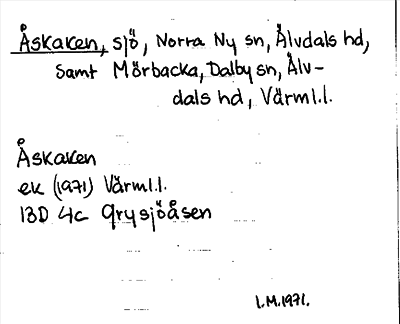 Åskaken, sjö, Norra Ny sn, Älvdals hd,
samt Mörbacka, Dalby sn, Älv-
dals hd, Värml.l.
Åskaken
ek (1971) Värml.l.
13D 4c Grysjöåsen
I.M.1971.